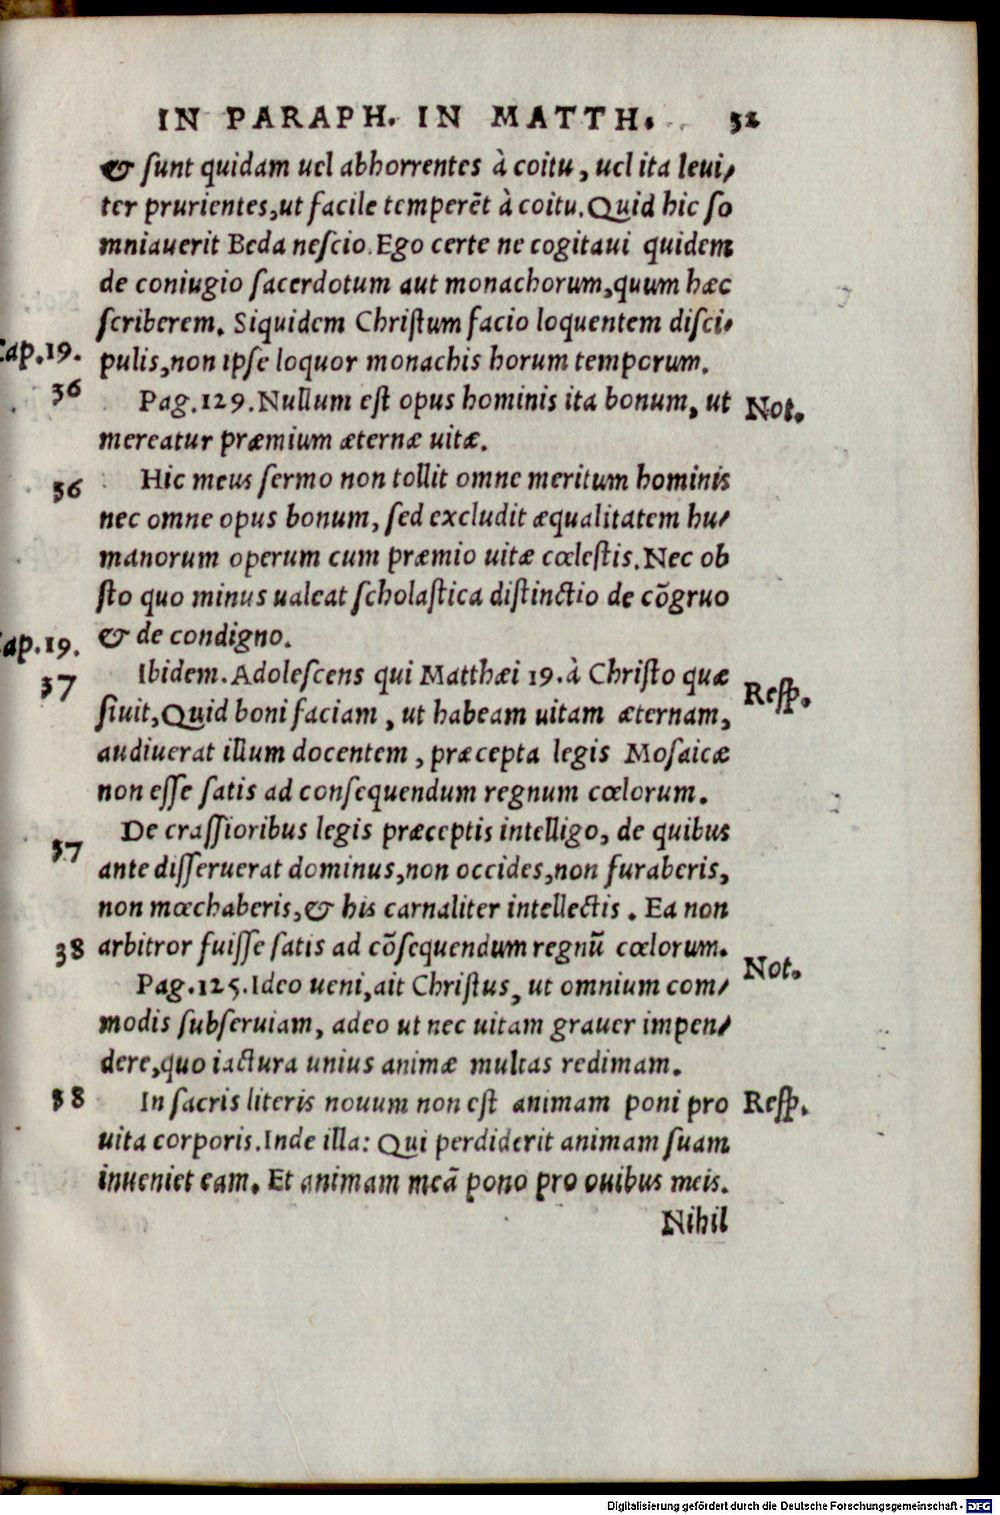 IN PARAPH. IN MATTH. 52
& sunt quidam uel abhorrentes à coitu, uel ita leui/
ter prurientes, ut facile temperēt à coitu. Quid hic so
mniauerit Beda nescio. Ego certe ne cogitaui quidem
de coniugio sacerdotum aut monachorum, quum hæc
scriberem. Siquidem Christum facio loquentem disci/
Cap. 19. pulis, non ipse loquor monachis horum temporum.
36 Pag. 129. Nullum est opus hominis ita bonum, ut Not.
mereatur præmium æternæ uitæ.
36 Hic meus sermo non tollit omne meritum hominis
nec omne opus bonum, sed excludit æqualitatem hu/
manorum operum cum præmio uitæ cœlestis. Nec ob
sto quo minus ualeat scholastica distinctio de cōgruo
Cap. 19. & de condigno.
37 Ibidem. Adolescens qui Matthæi 19. à Christo quæ Resp.
siuit, Quid boni faciam, ut habeam uitam æternam,
audiuerat illum docentem, præcepta legis Mosaicæ
non esse satis ad consequendum regnum cœlorum.
37 De crassioribus legis præceptis intelligo, de quibus
ante disseruerat dominus, non occides, non furaberis,
non mœchaberis, & his carnaliter intellectis. Ea non
38 arbitror fuisse satis ad cōsequendum regnū cœlorum.
Pag. 125. Ideo ueni, ait Christus, ut omnium com/ Not.
modis subseruiam, adeo ut nec uitam grauer impen/
dere, quo iactura unius animæ multas redimam.
38 In sacris literis nouum non est animam poni pro Resp.
uita corporis. Inde illa: Qui perdiderit animam suam
inueniet eam. Et animam meā pono pro ouibus meis.
Nihil
Digitalisierung gefördert durch die Deutsche Forschungsgemeinschaft - DFG